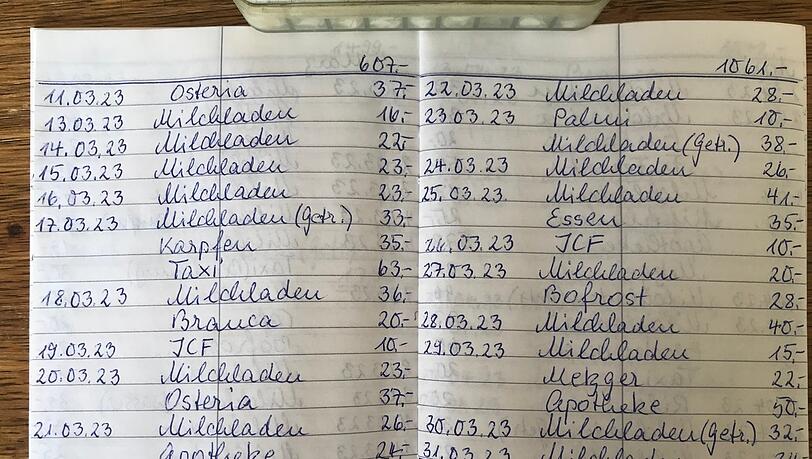 607,-
11.03.23 Osteria 37,-
13.03.23 Milchladen 16,-
14.03.23 Milchladen 22,-
15.03.23 Milchladen 23,-
16.03.23 Milchladen 23,-
17.03.23 Milchladen (Getr.) 33,-
Karpfen 35,-
Taxi 63,-
18.03.23 Milchladen 36,-
Branca 20,-
19.03.23 JCF 10,-
20.03.23 Milchladen 23,-
Osteria 37,-
21.03.23 Milchladen 26,-
Apotheke 24,-
1061,-
22.03.23 Milchladen 28,-
23.03.23 Palmi 10,-
Milchladen (Getr.) 38,-
24.03.23 Milchladen 26,-
25.03.23 Milchladen 41,-
Essen 35,-
26.03.23 JCF 10,-
27.03.23 Milchladen 20,-
Bofrost 28,-
28.03.23 Milchladen 40,-
29.03.23 Milchladen 15,-
Metzger 22,-
Apotheke 50,-
30.03.23 Milchladen (Getr.) 32,-
31.03.23 Milchladen